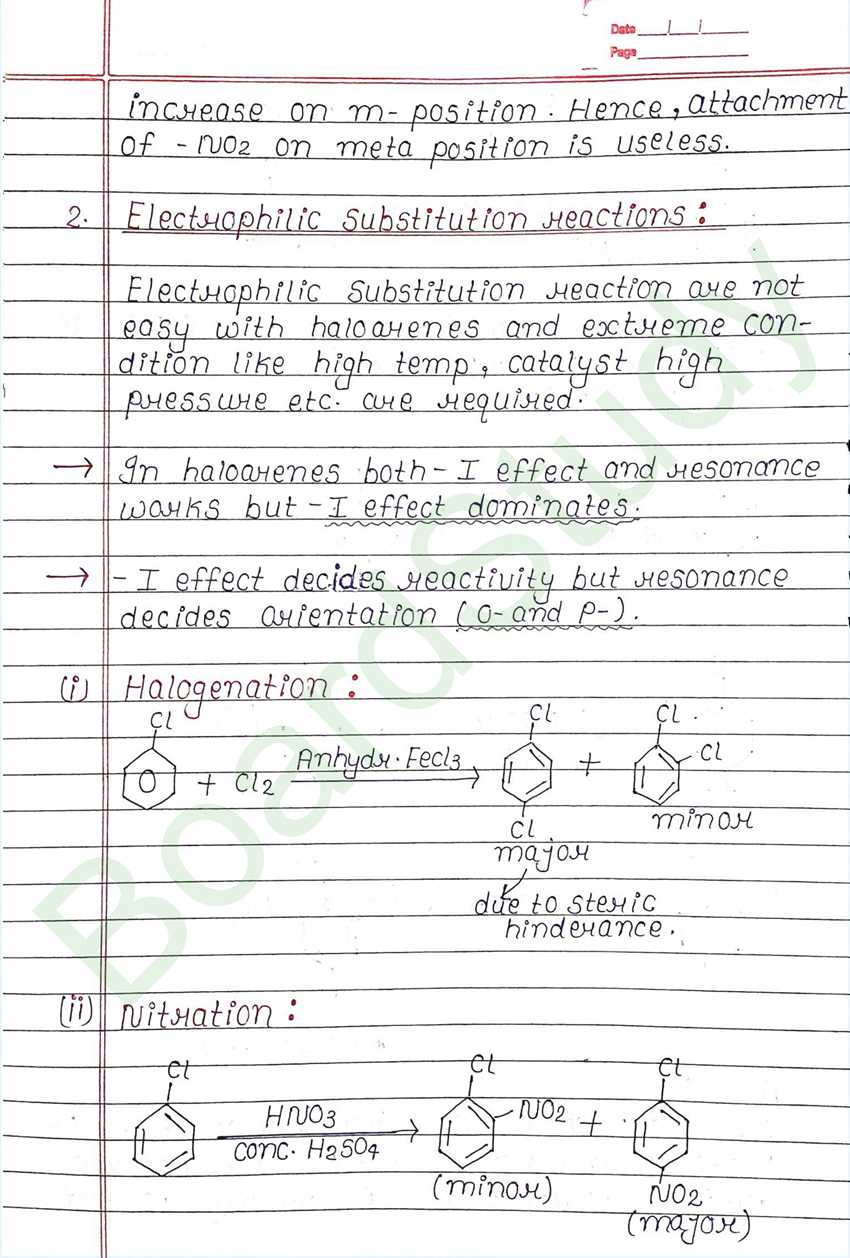 Date / /
Page
increase on m- position. Hence, attachment
of -NO2 on meta position is useless.
2. Electrophilic substitution reactions:
Electrophilic substitution reaction are not
easy with haloarenes and exctreme con-
dition like high temp, catalyst high
pressure etc. are required.
→ In haloarenes both -I effect and resonance
works but -I effect dominates.
→ -I effect decides reactivity but resonance
decides orientation (O- and P-).
(i) Halogenation:
Cl
+ Cl2
Anhydr. FeCl3
Cl
Cl
major
+
Cl
Cl
minor
due to steric
hinderance.
(ii) Nitration:
Cl
HNO3
conc. H2SO4
Cl
NO2
(minor)
+
Cl
NO2
(major)
BoardStudy